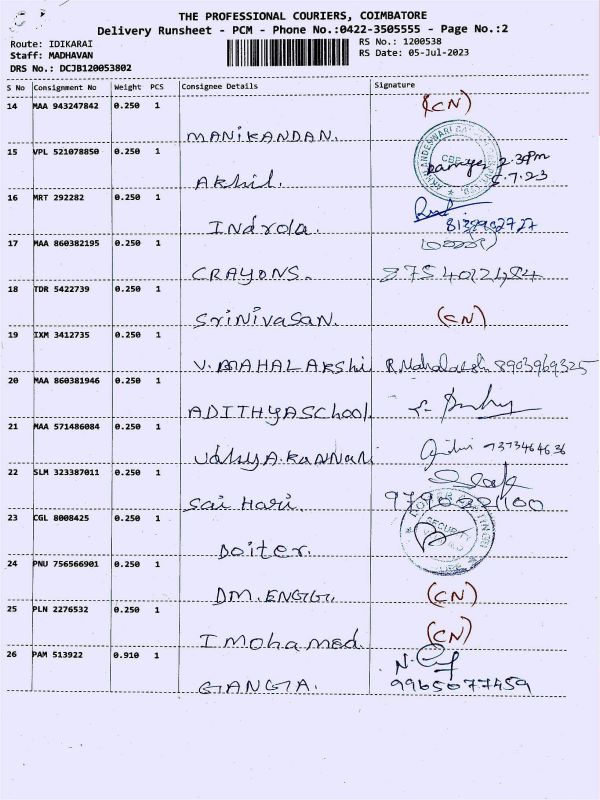 THE PROFESSIONAL COURIERS, COIMBATORE
Delivery Runsheet - PCM - Phone No.:0422-3505555 - Page No.:2
Route: IDIKARAI
RS No.: 1200538
Staff: MADHAVAN
RS Date: 05-Jul-2023
DRS No.: DCJB120053802
S No Consignment No Weight PCS Consignee Details Signature
14 MAA 943247842 0.250 1 (CN)
MANIKANDAN.
15 VPL 521078850 0.250 1
2.30pm
Akhil. 5.7.23
16 MRT 292282 0.250 1
Indrola.
17 MAA 860382195 0.250 1
CRAYONS.
18 TDR 5422739 0.250 1
SriNivasan. (CN)
19 IXM 3412735 0.250 1
V. MAHALAKShi 8903969325
20 MAA 860381946 0.250 1
ADITHYASchool
21 MAA 571486084 0.250 1
7373464636
22 SLM 323387011 0.250 1
Sai Hari.
23 CGL 8008425 0.250 1
SECURITY
Doiter.
24 PNU 756566901 0.250 1
DM. ENGG. (CN)
25 PLN 2276532 0.250 1
I Mohamed. (CN)
26 PAM 513922 0.910 1
GANGA. 9965077459